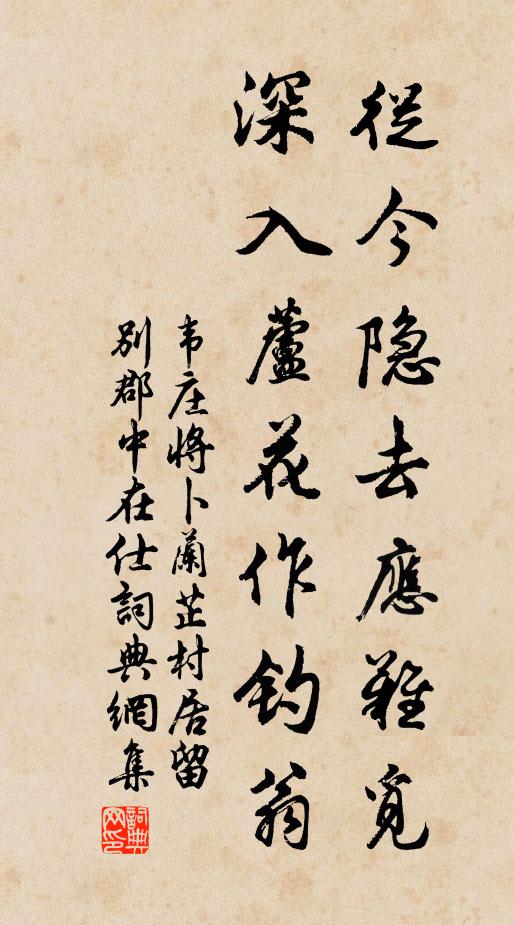 從今隐去應難覓
深入蘆花作釣翁
韦庄將卜蘭芷村居留
别郡中在仕詞典網集
詞典网印